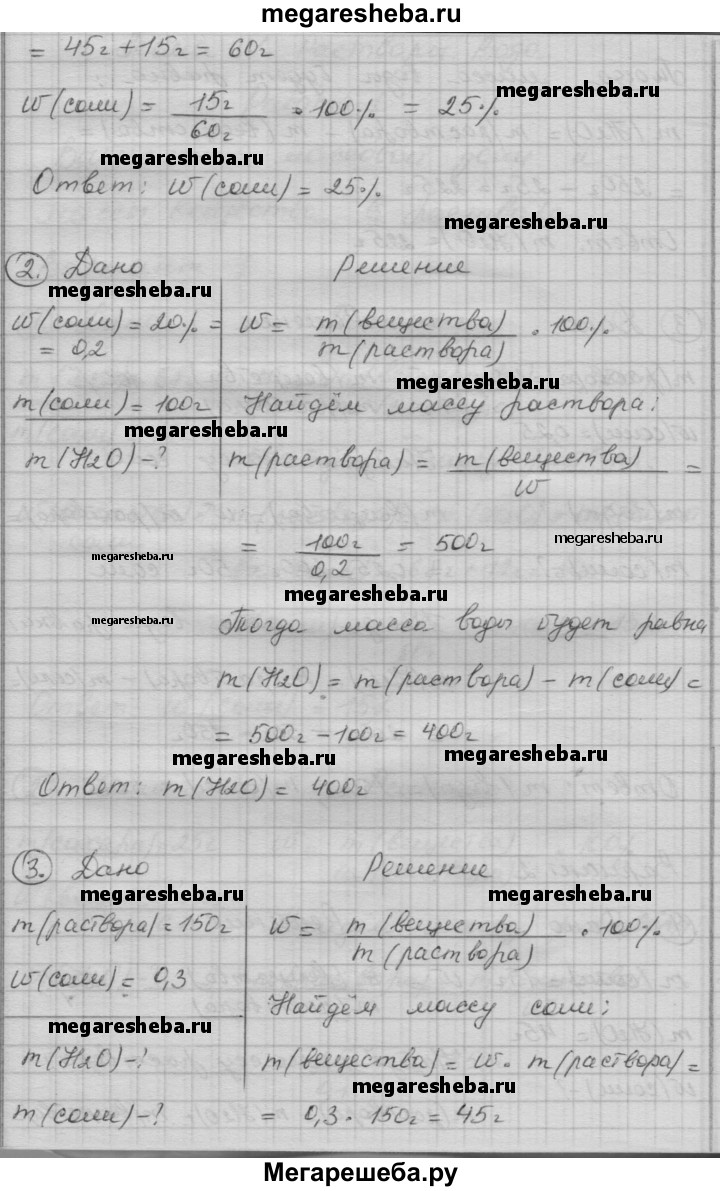 megaresheba.ru
= 45г + 15г = 60г
w(соли) = 15г / 60г • 100% = 25%
megaresheba.ru
megaresheba.ru
Ответ: w(соли) = 25%
megaresheba.ru
2. Дано Решение
megaresheba.ru
w(соли) = 20% = w = m(вещества) / m(раствора) • 100%
= 0,2
megaresheba.ru
m(соли) = 100г Найдём массу раствора:
megaresheba.ru
m(H2O) - ? m(раствора) = m(вещества) / w =
= 100г / 0,2 = 500г
megaresheba.ru
megaresheba.ru
megaresheba.ru
megaresheba.ru Тогда масса воды будет равна
m(H2O) = m(раствора) - m(соли) =
= 500г - 100г = 400г
megaresheba.ru megaresheba.ru
Ответ: m(H2O) = 400г
3. Дано Решение
megaresheba.ru megaresheba.ru
m(раствора) = 150г w = m(вещества) / m(раствора) • 100%
w(соли) = 0,3
Найдём массу соли:
megaresheba.ru
m(H2O) - ? m(вещества) = w • m(раствора) =
megaresheba.ru
m(соли) - ? = 0,3 • 150г = 45г
Мегарешеба.ру